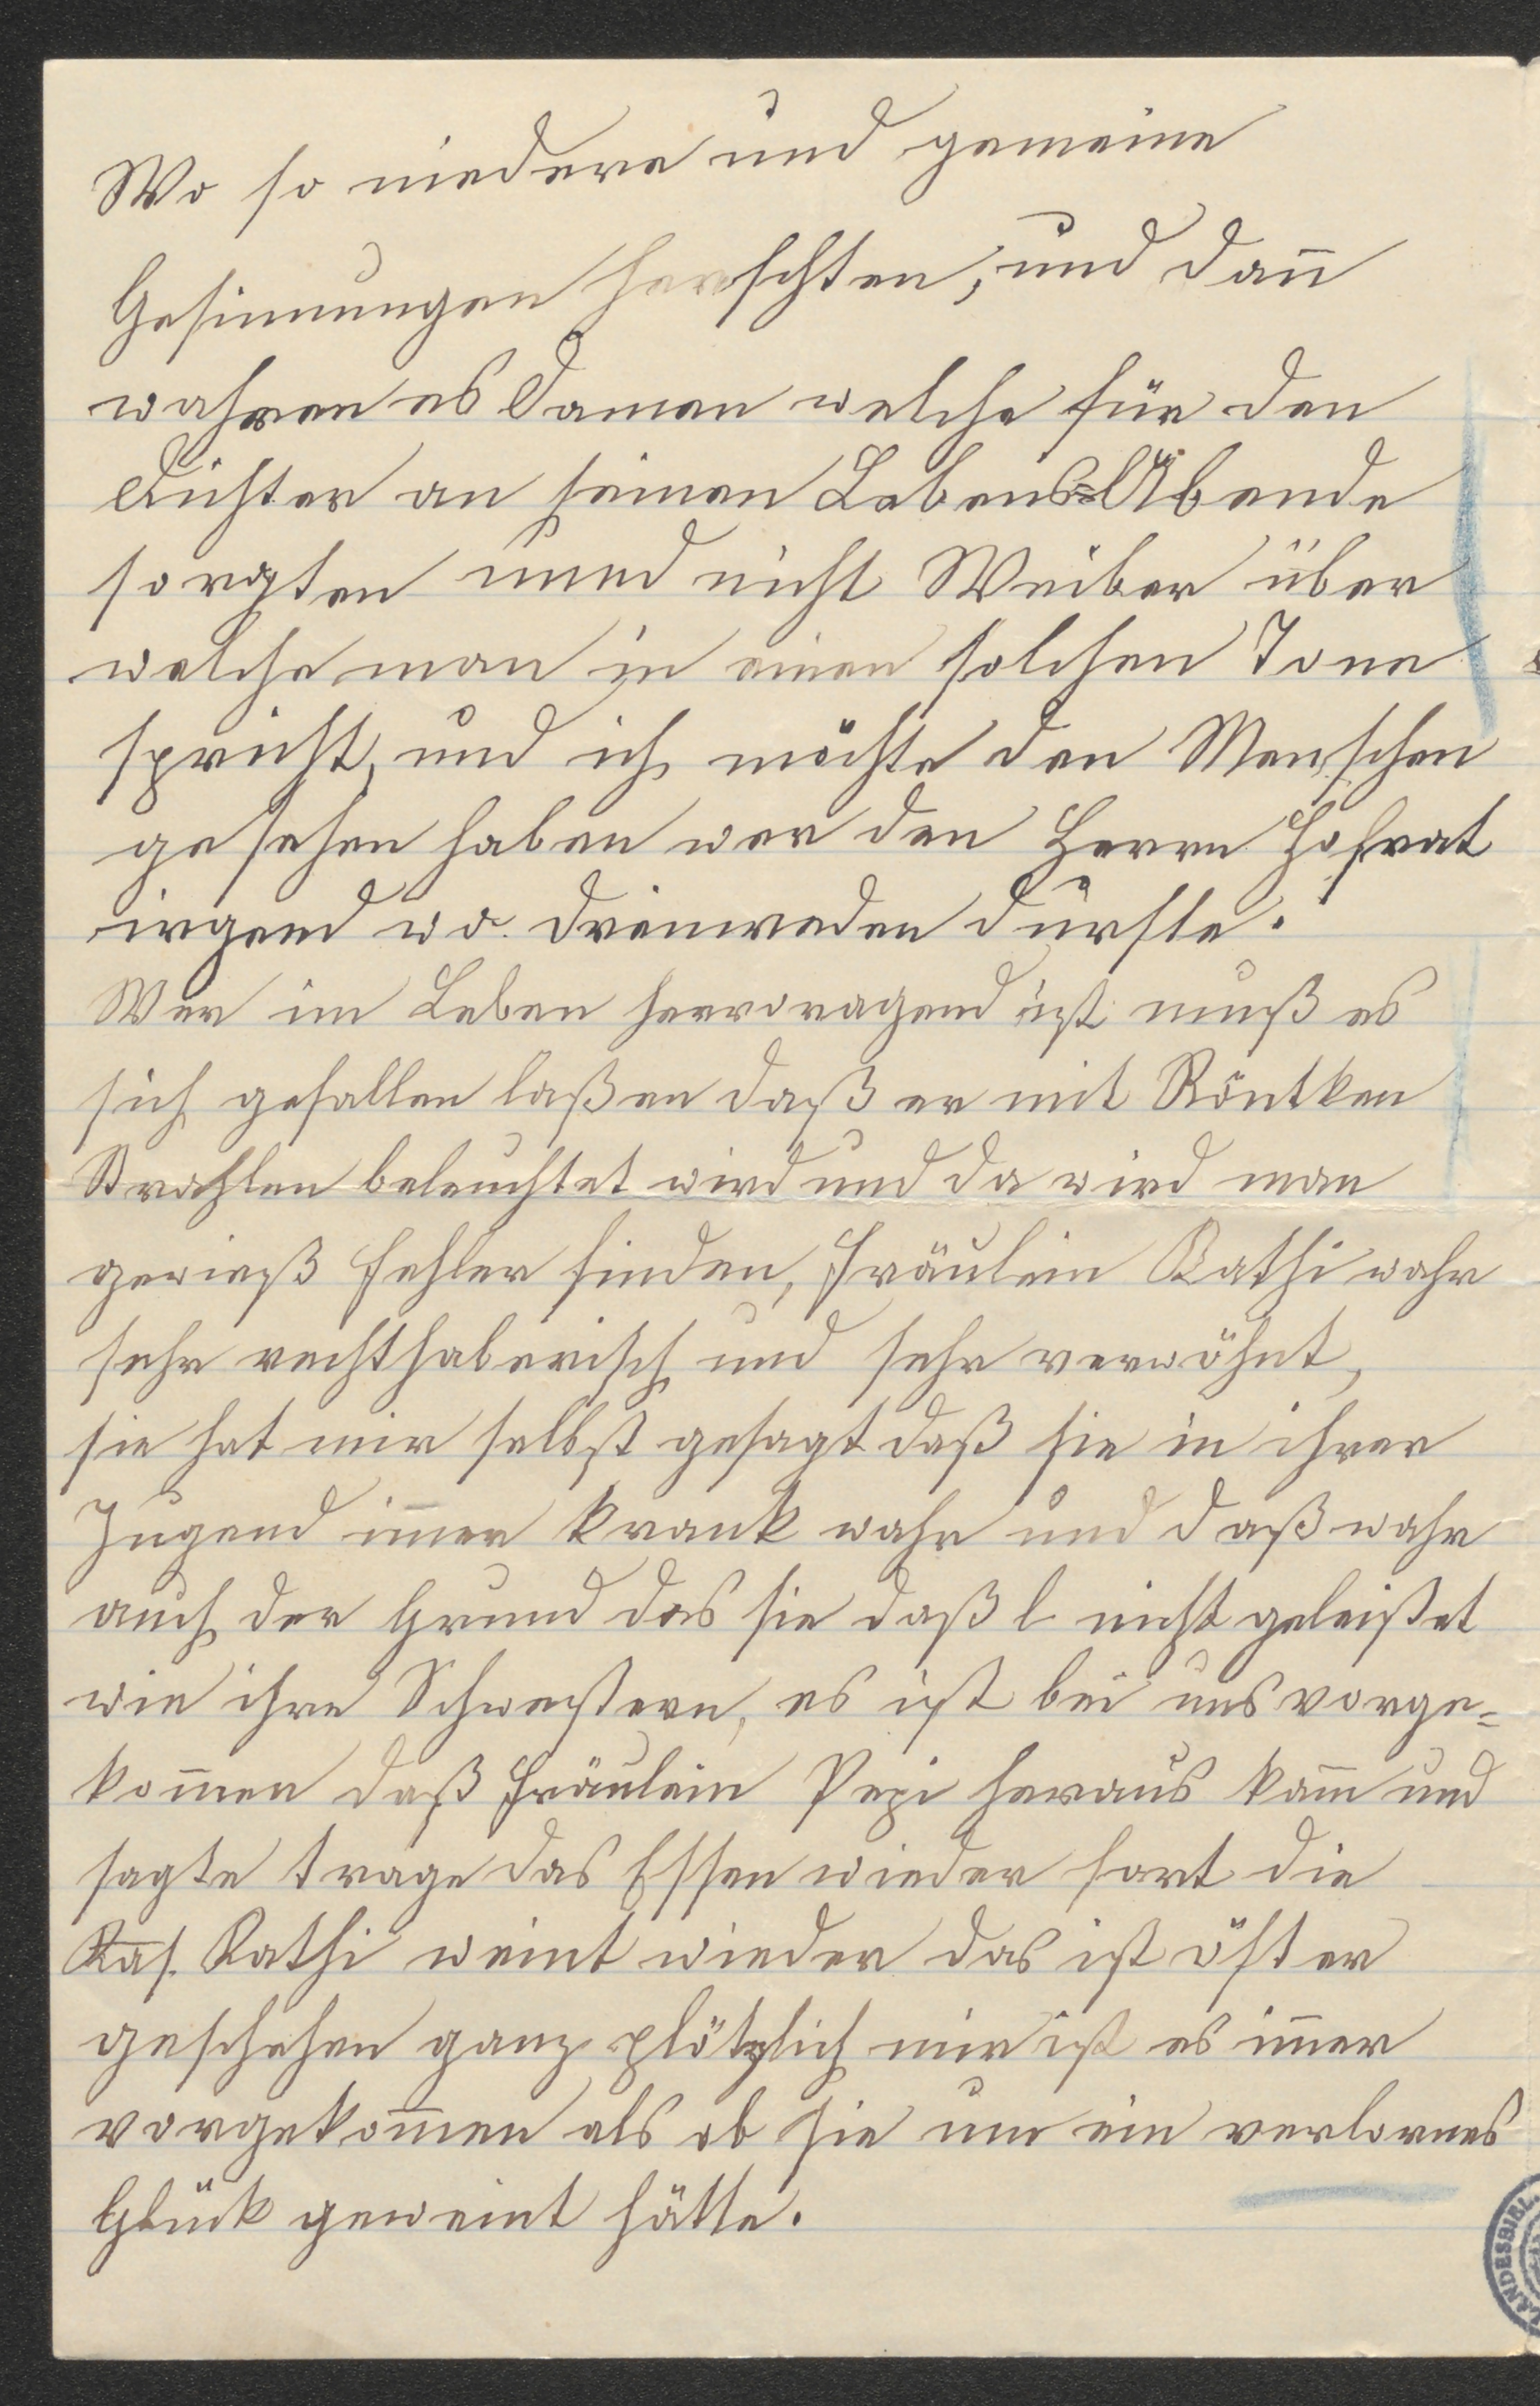 Wo so niedere und gemeine
Gesinnungen herschten, und dan̄
wahren es Damen welche für den
Dichter an seinen Lebens=Abende
sorgten und nicht Weiber über
welche man in einen solchen Tone
spricht, und ich möchte den Menschen
gesehen haben wer den Herrn Hofrat
irgend wo dreinreden dürfte.
Wer im Leben hervoragend ist muß es
sich gefallen laßen daß er mit Röntken
Strahlen beleuchtet wird und da wird man
gewieß Fehler finden, Fräulein Kathi wahr
sehr rechthaberisch und sehr verwöhnt,
sie hat mir selbst gesagt daß sie in ihrer
Jugend im̄er krank wahr und daß wahr
auch der Grund das sie daß nicht geleißet
wie ihre Schwestern, es ist bei uns vorge=
kom̄en daß Fräulein Pepi heraus kam und
sagte trage das Essen wieder fort die
Kathi weint wieder das ist öfter
geschehen ganz plötzlich mir ist es im̄er
vorgekom̄en als ob sie um ein verlornes
Glück geweint hätte.
LANDESBIBL.